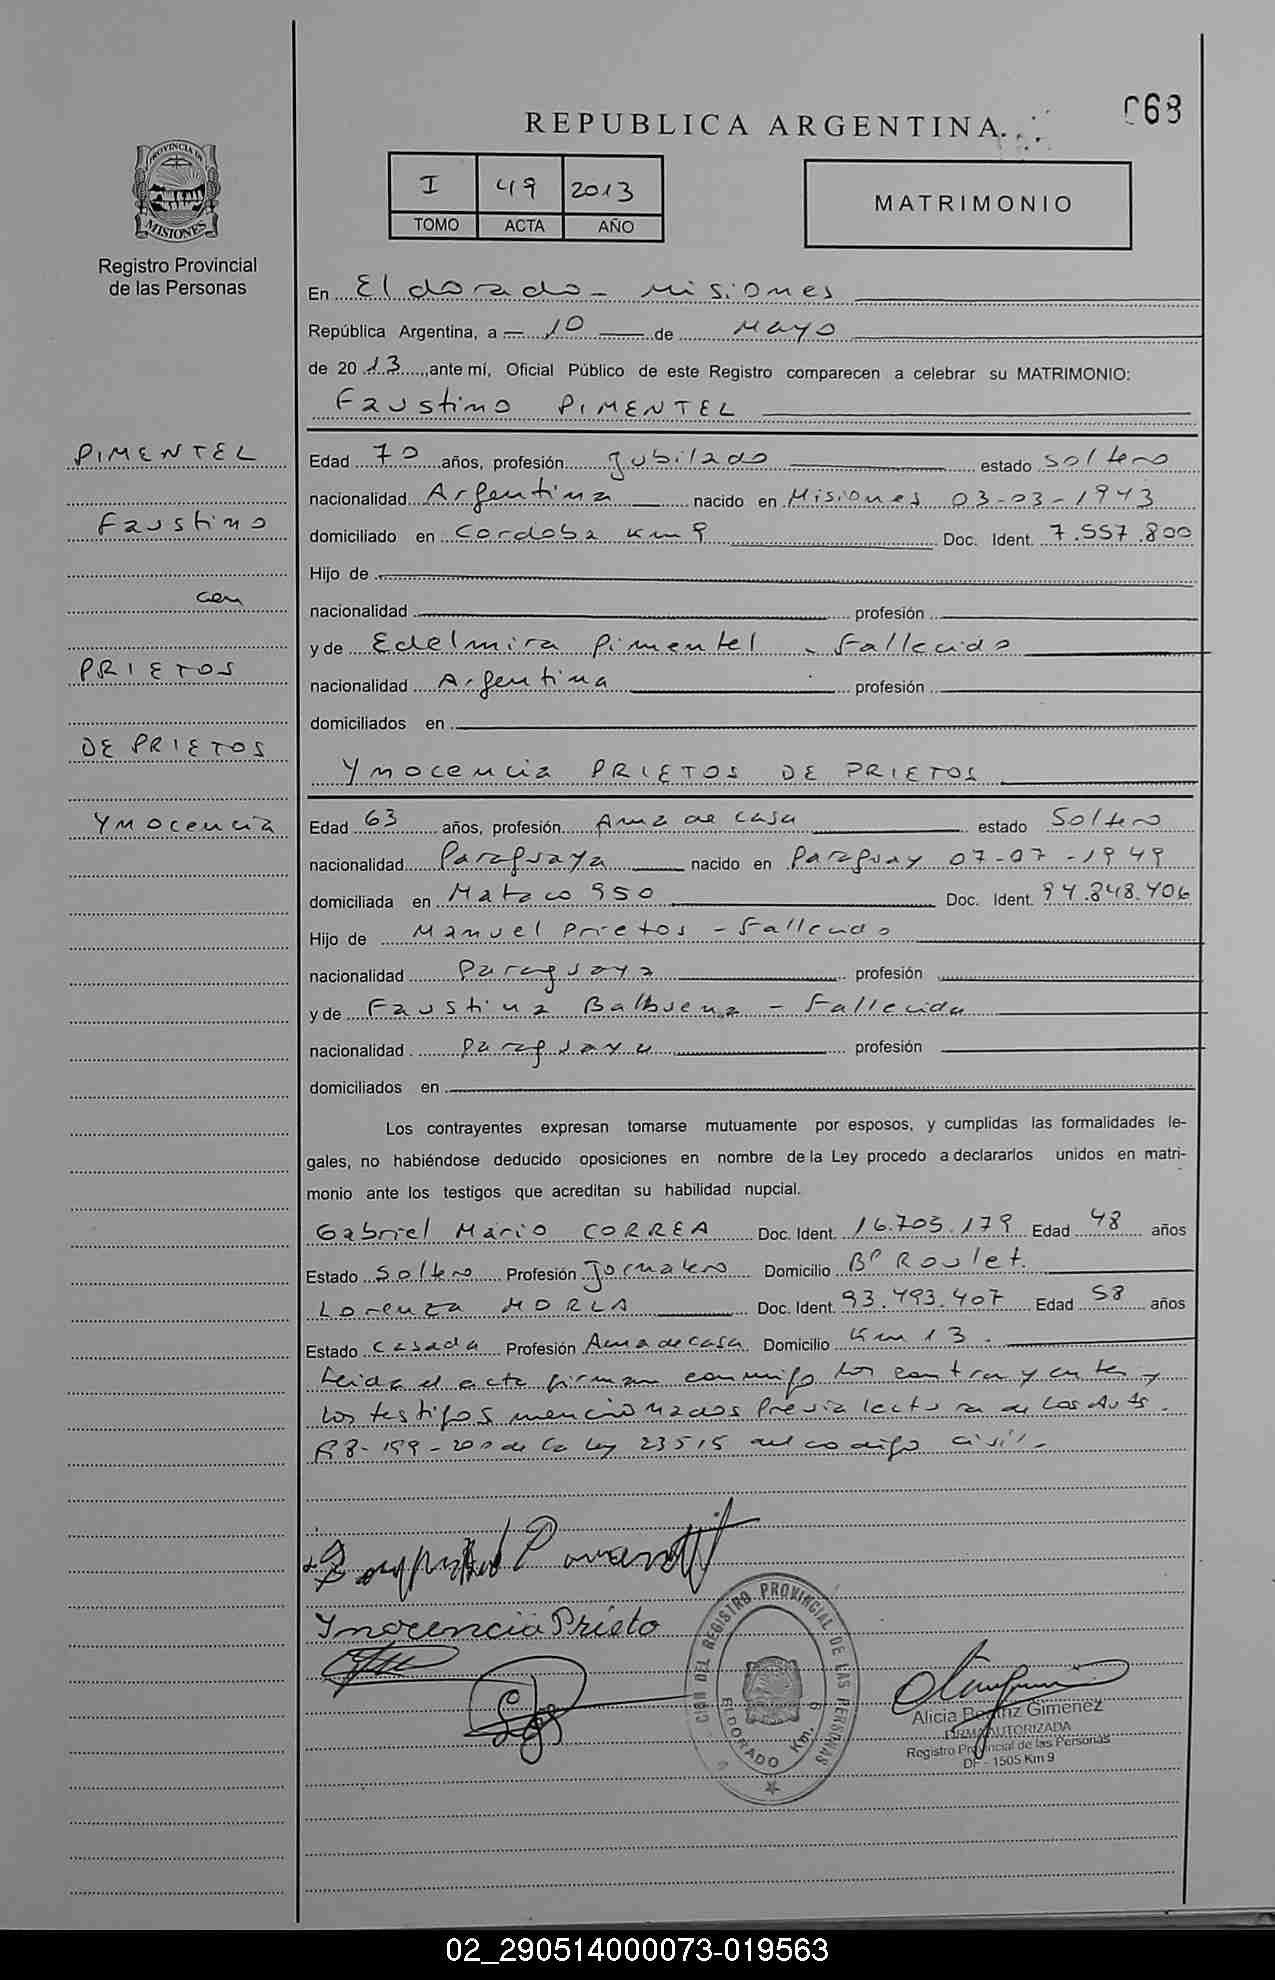 068
REPUBLICA ARGENTINA
PROVINCIA DE
MISIONES
Registro Provincial
de las Personas
I 49 2013
TOMO ACTA AÑO
MATRIMONIO
En Eldorado - Misiones
República Argentina, a 10 de Mayo
de 2013, ante mí, Oficial Público de este Registro comparecen a celebrar su MATRIMONIO:
Faustino PIMENTEL
PIMENTEL
Faustino
con
PRIETOS
DE PRIETOS
Ynocencia
Edad 70 años, profesión Jubilado estado Soltero
nacionalidad Argentina nacido en Misiones 03-03-1943
domiciliado en Cordoba Km 9 Doc. Ident. 7.557.800
Hijo de
nacionalidad profesión
y de Edelmira Pimentel - Fallecido
nacionalidad Argentina profesión
domiciliados en
Ynocencia PRIETOS DE PRIETOS
Edad 63 años, profesión Ama de casa estado Soltero
nacionalidad Paraguaya nacido en Paraguay 07-07-1949
domiciliada en Mataco 950 Doc. Ident. 94.848.406
Hijo de Manuel Prietos - Fallecido
nacionalidad Paraguaya profesión
y de Faustina Balbuena - Fallecida
nacionalidad Paraguaya profesión
domiciliados en
Los contrayentes expresan tomarse mutuamente por esposos, y cumplidas las formalidades le-
gales, no habiéndose deducido oposiciones en nombre de la Ley procedo a declararlos unidos en matri-
monio ante los testigos que acreditan su habilidad nupcial.
Gabriel Mario CORREA Doc. Ident. 16.705.179 Edad 48 años
Estado Soltero Profesión Jornalero Domicilio Bº Roulet.
Lorenza MORLA Doc. Ident. 93.493.407 Edad 58 años
Estado Casada Profesión Ama de casa Domicilio Km 13.
Leida el acta firman conmigo los contrayentes y
los testigos mencionados Previa lectura de los Arts.
198-199-200 de la ley 23515 del codigo civil.
Ynocencia Prieto
CION DEL REGISTRO PROVINCIAL DE LAS PERSONAS
ELDORADO Km. 9
Alicia Beatriz Gimenez
FIRMA AUTORIZADA
Registro Provincial de las Personas
DF - 1505 Km 9
02_290514000073-019563